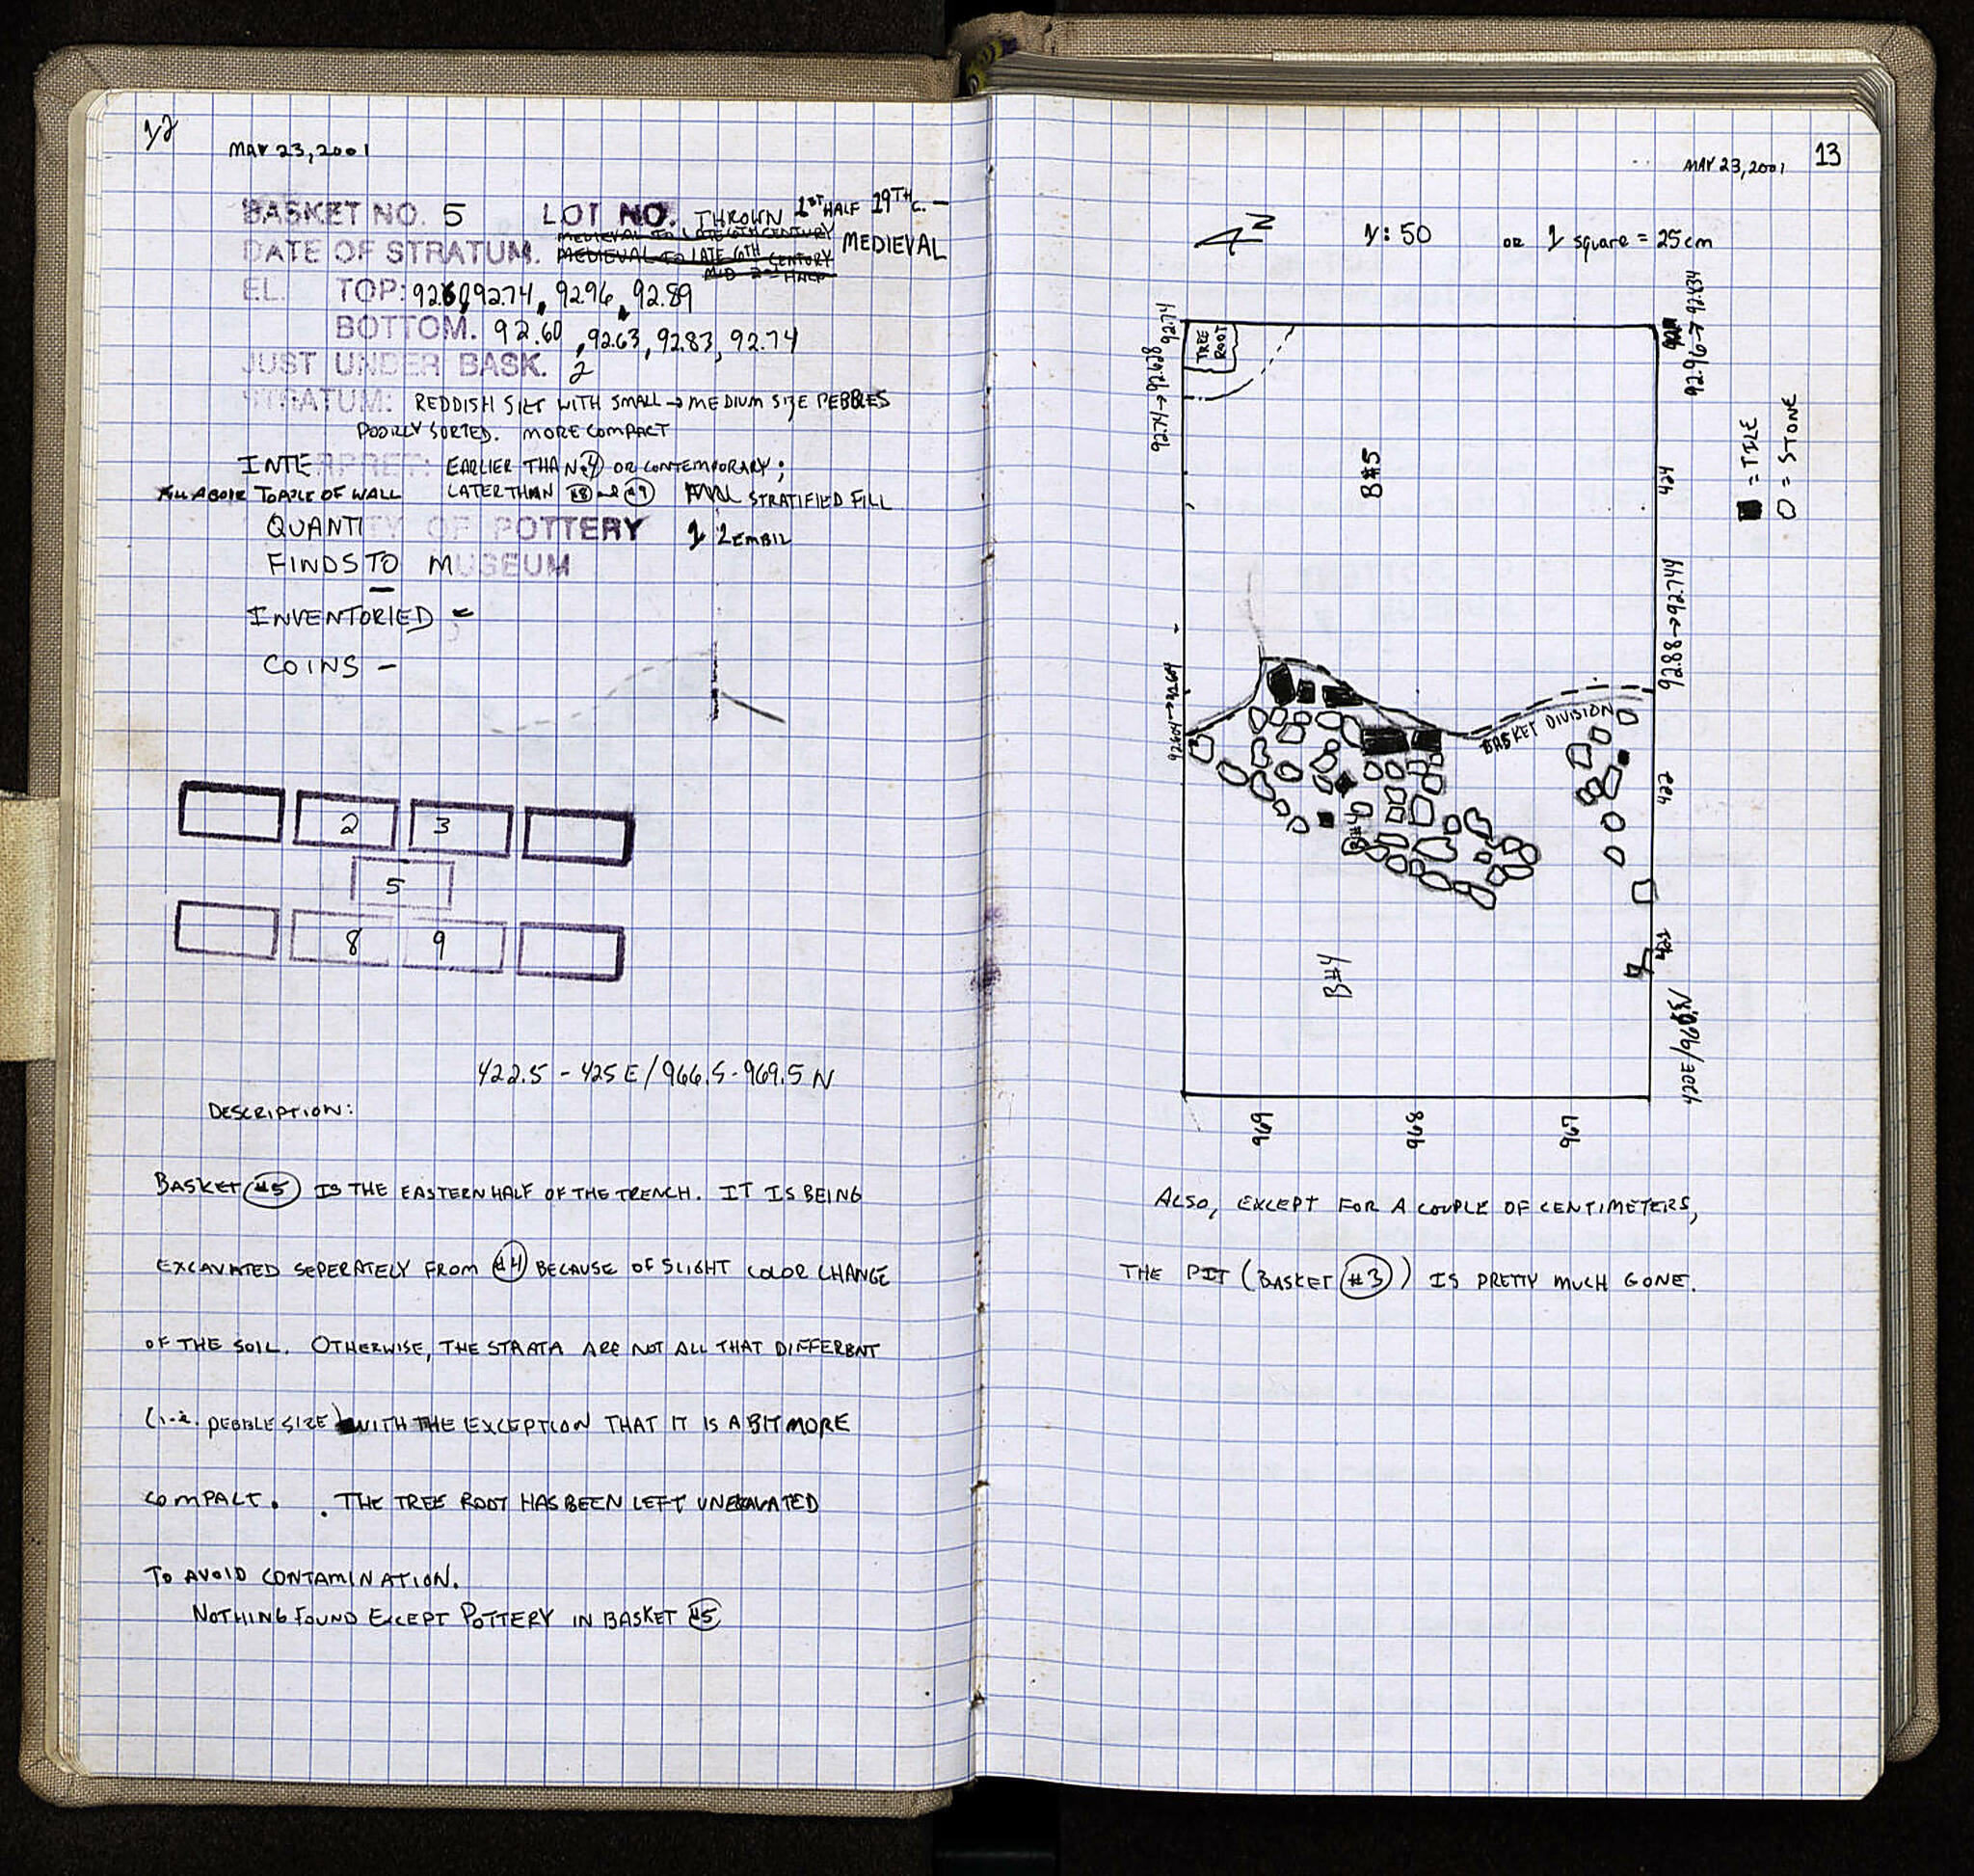 12
MAY 23, 2001
BASKET NO. 5 LOT NO. THROWN 1ST HALF 19TH C. —
MEDIEVAL TO LATE 6TH CENTURY
DATE OF STRATUM. MEDIEVAL TO LATE 6TH CENTURY MEDIEVAL
MID 2ND HALF
EL. TOP: 92.60, 92.74, 92.96, 92.89
BOTTOM. 92.60, 92.63, 92.83, 92.74
JUST UNDER BASK. 2
STRATUM: REDDISH SILT WITH SMALL → MEDIUM SIZE PEBBLES
POORLY SORTED. MORE COMPACT
INTERPRET: EARLIER THAN #4 OR CONTEMPORARY;
FILL ABOVE TOPPLE OF WALL LATER THAN #8 and #9 STRATIFIED FILL
QUANTITY OF POTTERY 1 ZEMBIL
FINDS TO MUSEUM
—
INVENTORIED –
COINS –
2 3
5
8 9
422.5 - 425 E / 966.5 - 969.5 N
DESCRIPTION:
BASKET #5 IS THE EASTERN HALF OF THE TRENCH. IT IS BEING
EXCAVATED SEPERATELY FROM #4 BECAUSE OF SLIGHT COLOR CHANGE
OF THE SOIL. OTHERWISE, THE STRATA ARE NOT ALL THAT DIFFERENT
(i.e. PEBBLE SIZE) WITH THE EXCEPTION THAT IT IS A BIT MORE
COMPACT. . THE TREE ROOT HAS BEEN LEFT UNEXCAVATED
TO AVOID CONTAMINATION.
NOTHING FOUND EXCEPT POTTERY IN BASKET #5
MAY 23, 2001 13
N
1:50 OR 1 square = 25 cm
92.74
TREE ROOT
92.96 → 92.834
92.74 → 92.628
■ = TILE
O = STONE
B#5
424
92.88 → 92.744
92.604 → 92.604
BASKET DIVISION
422
B#4
B#4
421
420E/966.5N
969
968
967
ALSO, EXCEPT FOR A COUPLE OF CENTIMETERS,
THE PIT (BASKET #3) IS PRETTY MUCH GONE.